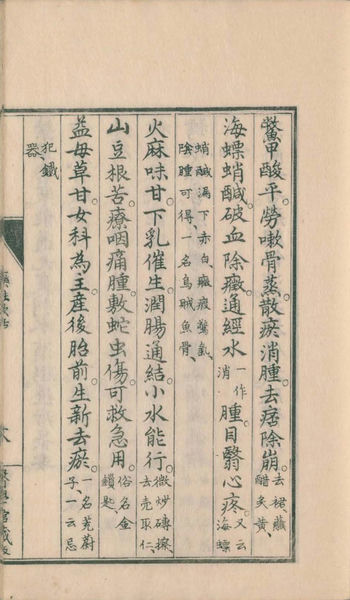 鱉甲酸平。勞嗽骨蒸。散瘀消腫。去痞除崩。去裙襴醋炙黃。
海螵蛸鹹。破血除癥。通經水一作消腫。目翳心疼。又云海螵
蛸鹹漏下赤白癥瘕驚氣
陰腫可得一名烏賊魚骨。
火麻味甘。下乳催生。潤腸通結。小水能行。微炒磚擦去壳取仁。
山豆根苦。療咽腫痛。敷蛇虫傷。可救急用。俗名金鎖匙。
益母草甘。女科為主。產後胎前。生新去瘀。一名茺蔚子。一云忌
犯鐵
器。